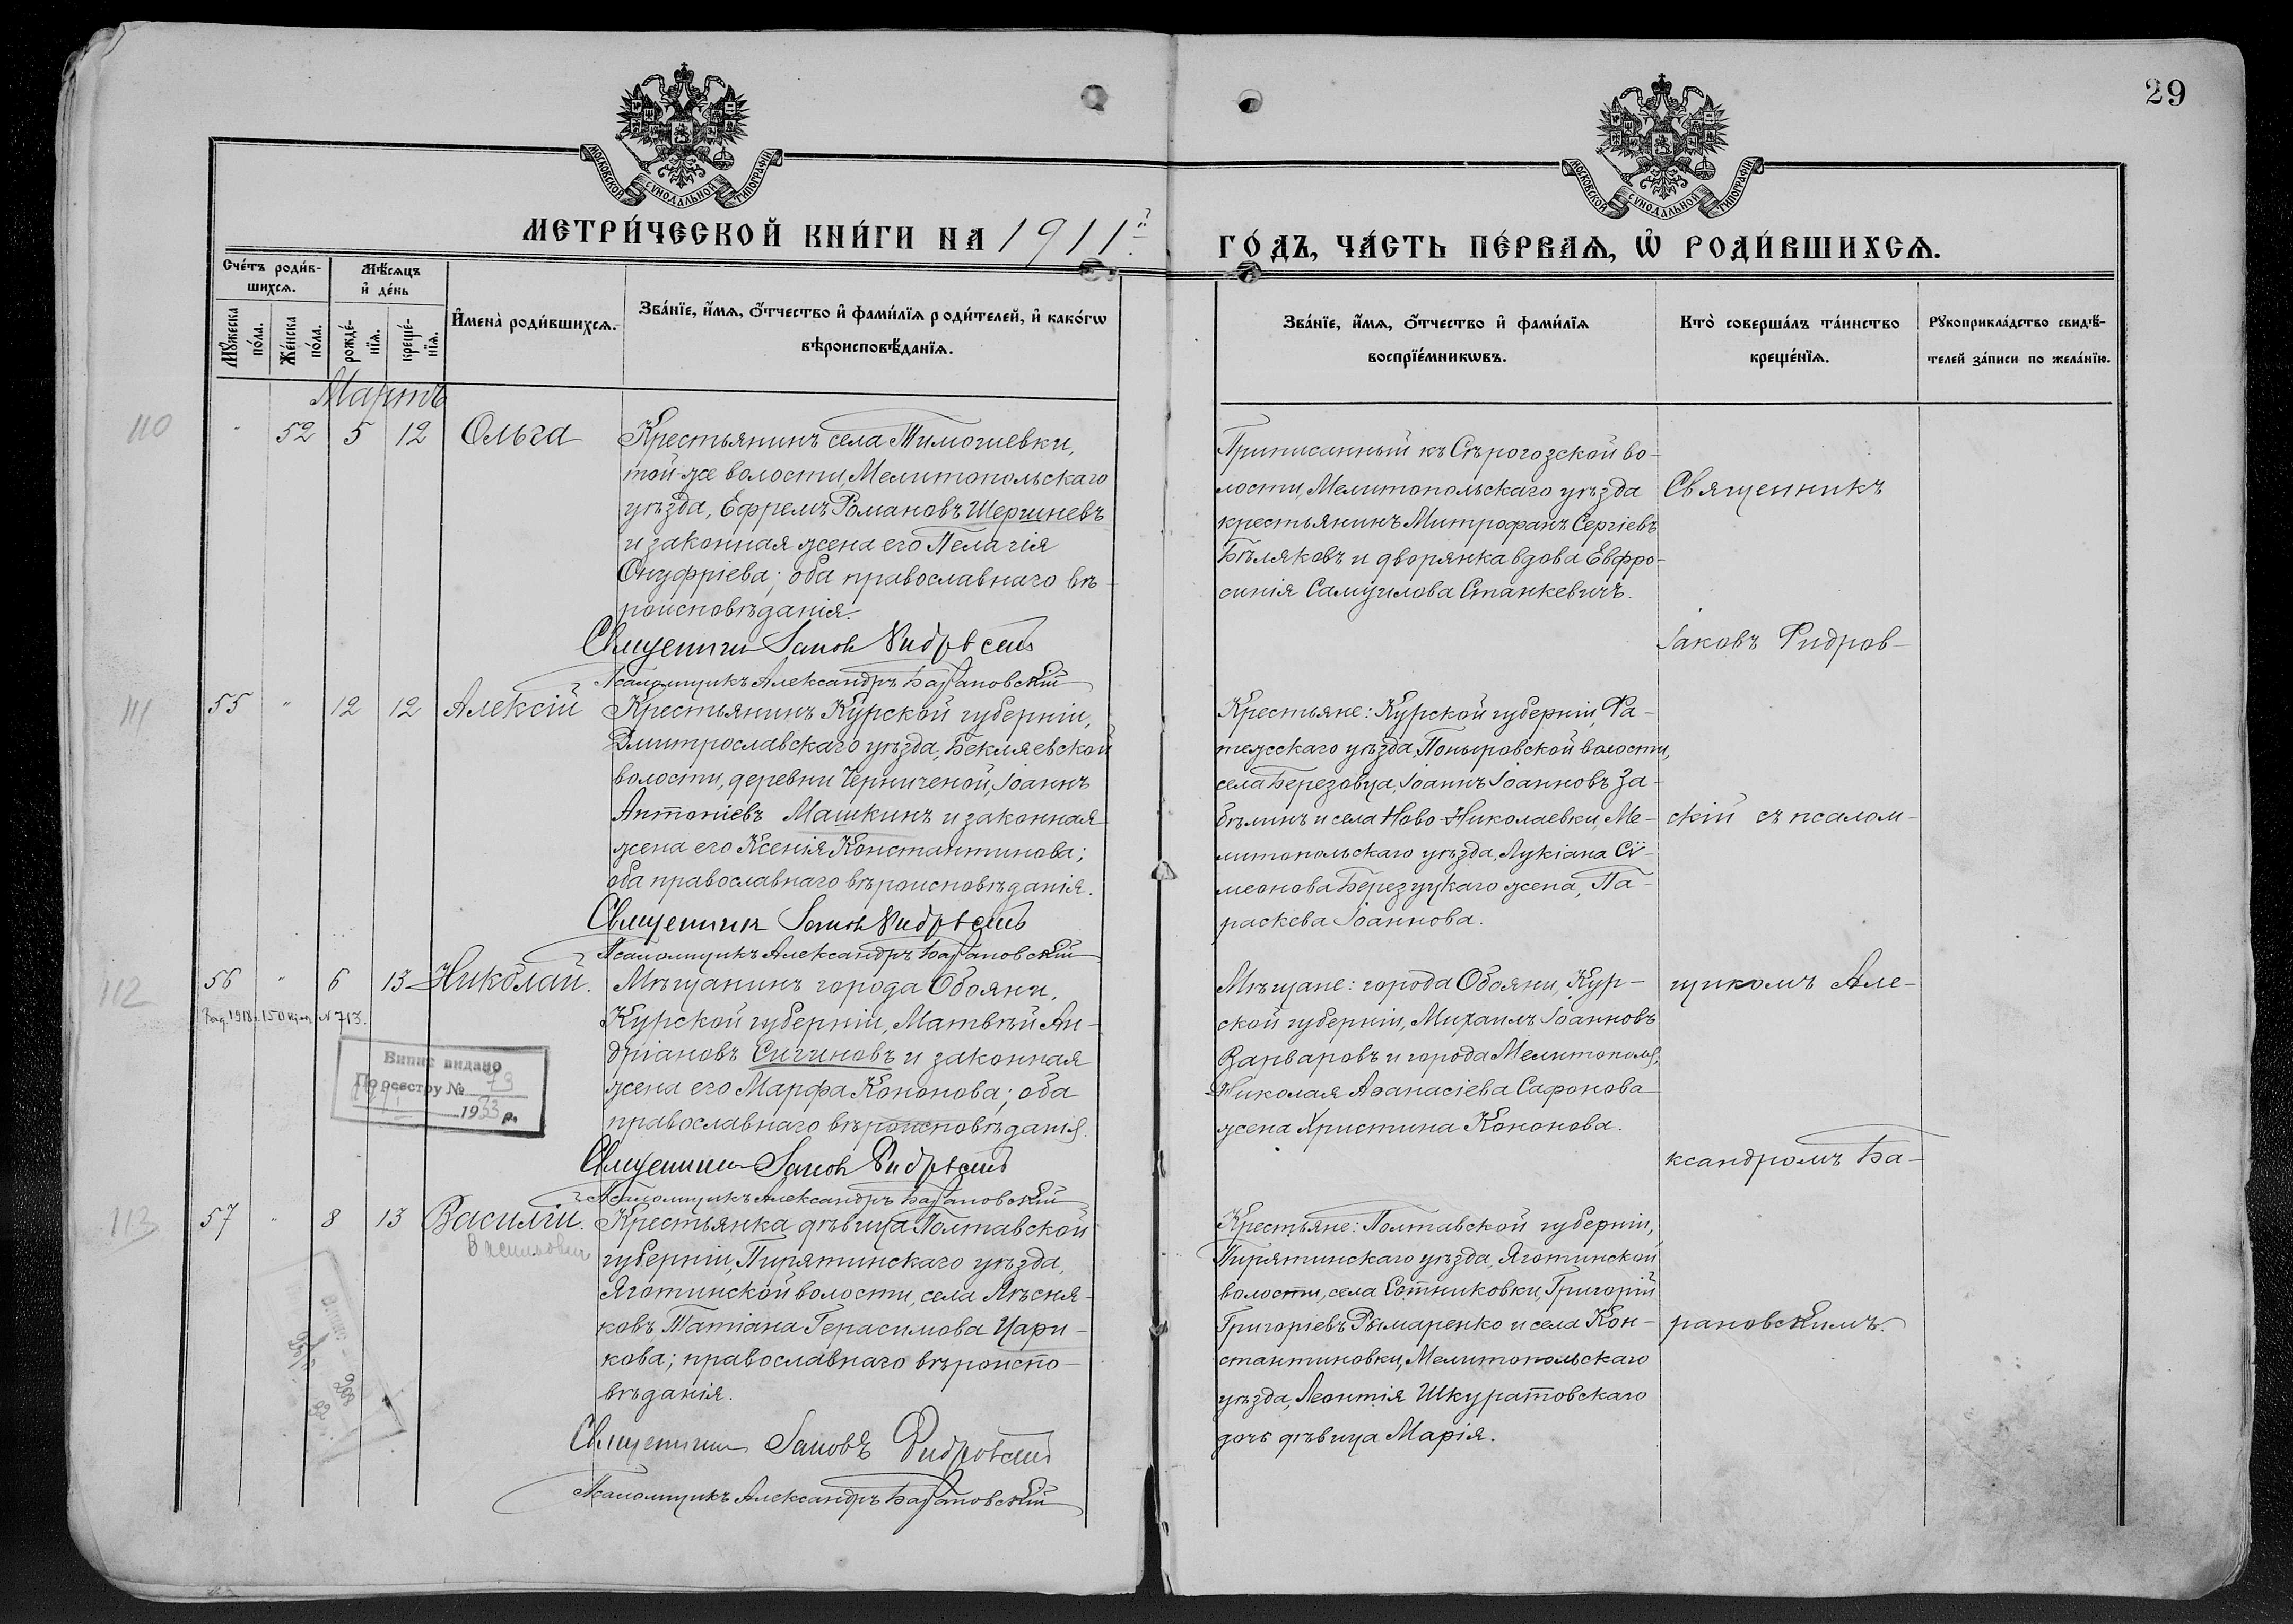 29
МОСКОВСКОЙ СѴНОДАЛЬНОЙ ТИПОГРАФІИ
МОСКОВСКОЙ СѴНОДАЛЬНОЙ ТИПОГРАФІИ
МЕТРИ́ЧЕСКОЙ КНИ́ГИ НА 1911й
ГО́ДЪ, ЧА́СТЬ ПЕ́РВАѦ, Ѡ҆ РОДИ́ВШИХСѦ.
Сче́тъ роди́в-
шихсѧ.
Мѣ́сѧцъ
и҆ де́нь
Мꙋ́жеска
по́ла.
Же́нска
по́ла.
рожде́-
нїѧ.
креще́-
нїѧ.
И҆мена̀ роди́вшихсѧ.
Зва́нїе, и҆́мѧ, ѻ҆́тчество и҆ фами́лїѧ роди́телей, и҆ како́гѡ
вѣроисповѣ́данїѧ.
Зва́нїе, и҆́мѧ, ѻ҆́тчество и҆ фами́лїѧ
воспрїе́мникѡвъ.
Кто̀ соверша́лъ та́инство
креще́нїѧ.
Рꙋкоприкла́дство свидѣ́-
телей за́писи по жела́нїю.
Мартъ
110
" 52 5 12 Ольга
Крестьянинъ села Тимошевки,
той-же волости, Мелитопольскаго
уѣзда, Ефремъ Романовъ Шершневъ
и законная жена его Пелагія
Онуфріева; оба православнаго вѣ-
роисповѣданія.
Священникъ Іаковъ Ридровскій
Псаломщикъ Александръ Барановскій
Приписанный къ Сѣрогозской во-
лости, Мелитопольскаго уѣзда
крестьянинъ Митрофанъ Сергіевъ
Бѣляковъ и дворянка вдова Евфро-
синія Самуилова Станкевичъ.
Священникъ
Іаковъ Ридров-
111
55 " 12 12 Алексій
Крестьянинъ Курской губерніи,
Дмитрославскаго уѣзда, Бекляевской
волости, деревни Черниченой, Іоаннъ
Антоніевъ Машкинъ и законная
жена его Ксенія Константинова;
оба православнаго вѣроисповѣданія.
Священникъ Іаковъ Ридровскій
Псаломщикъ Александръ Барановскій
Крестьяне: Курской губерніи, Фа-
тежскаго уѣзда, Поныровской волости,
села Березовца, Іоаннъ Іоанновъ За-
бѣлинъ и села Ново-Николаевки, Ме-
литопольскаго уѣзда, Лукіана Сѵ-
меонова Березуцкаго жена, Па-
раскева Іоаннова.
скій съ псалом-
112
56 " 6 13 Николай.
1918 № 713.
Випис видано
По реєстру № 73
1933 р.
Мѣщанинъ города Обояни,
Курской губерніи, Матвѣй Ан-
дріановъ Сигиновъ и законная
жена его Марфа Кононова; оба
православнаго вѣроисповѣданія.
Священникъ Іаковъ Ридровскій
Псаломщикъ Александръ Барановскій
Мѣщане: города Обояни, Кур-
ской губерніи, Михаилъ Іоанновъ
Варваровъ и города Мелитополя,
Николая Аѳанасіева Сафонова
жена Христина Кононова.
щикомъ Але-
ксандромъ Ба-
113
57 " 8 13 Василій.
Васильович
Крестьянка дѣвица Полтавской
губерніи, Пирятинскаго уѣзда,
Яготинской волости, села Лѣсня-
ковъ Татіана Герасимова Цари-
кова; православнаго вѣроиспо-
вѣданія.
Священникъ Іаковъ Ридровскій
Псаломщикъ Александръ Барановскій
Крестьяне: Полтавской губерніи,
Пирятинскаго уѣзда, Яготинской
волости, села Сотниковки, Григорій
Григоріевъ Рымаренко и села Кон-
стантиновки, Мелитопольскаго
уѣзда, Леонтія Шкуратовскаго
дочь дѣвица Марія.
рановскимъ.